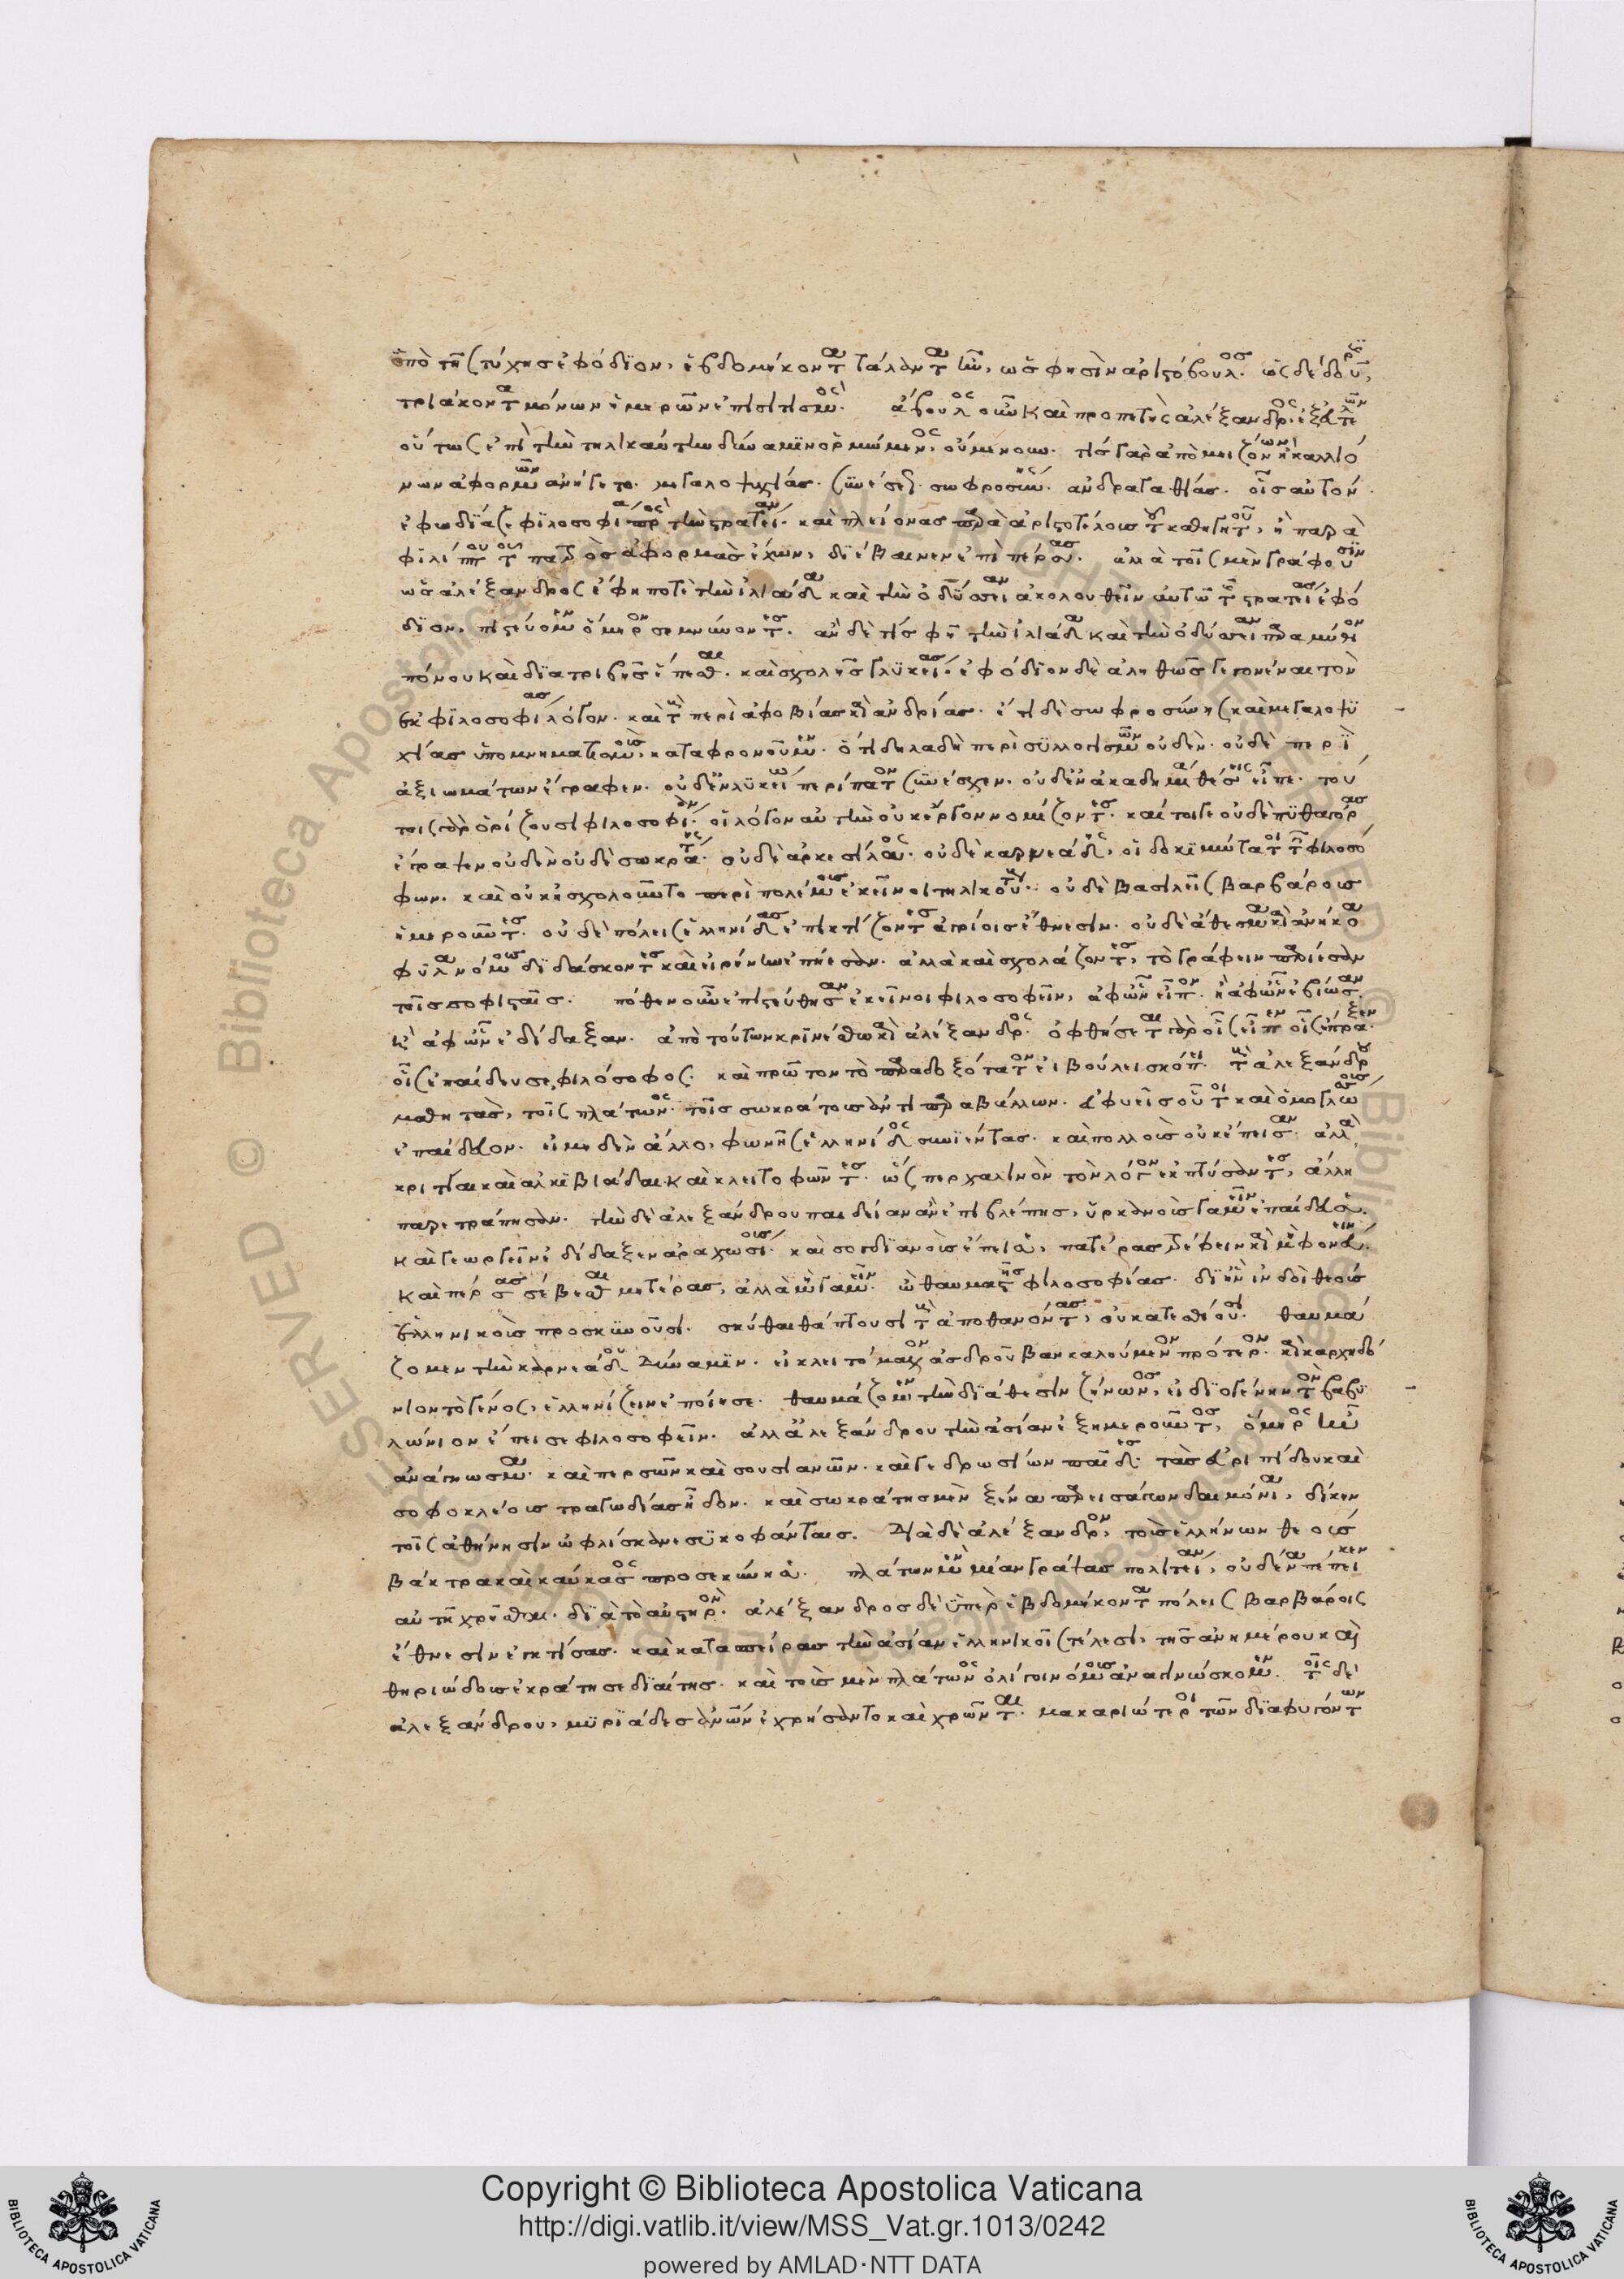 ὑπὸ τῆς τύχης ἐφόδιον, ἑβδομήκοντα τάλαντα ἦν, ὥς φησιν ἀριστόβουλος. ὡς δὲ δοῦρις,
τριάκοντα μόνων ἡμερῶν ἐπισιτισμός. ἄβουλος οὖν καὶ προπετὴς ἀλέξανδρος ἐξ εὐτελῶν
οὕτως ἐπὶ τὴν τηλικαύτην δύναμιν ὁρμώμενος, οὐμενουν. τίς γὰρ ἀπὸ μειζόνων ἢ καλλιό
νων ἀφορμῶν ἀνήγετο. μεγαλοψυχίας. συνέσεως. σωφροσύνης. ἀνδραγαθίας. οἷς αὐτὸν
ἐφωδίαζε φιλοσοφία πρὸς τὴν στρατείαν. καὶ πλείονας παρὰ ἀριστοτέλους τοῦ καθηγητοῦ, ἢ παρὰ
φιλίππου τοῦ πατρὸς ἀφορμὰς ἔχων, διέβαινεν ἐπὶ πέρσας. ἀλλὰ τοῖς μὲν γράφουσιν
ὡς ἀλέξανδρος ἔφη ποτὲ τὴν ἰλιάδα καὶ τὴν ὀδύσσειαν ἀκολουθεῖν αὐτῷ τῆς στρατείας ἐφό
διον, πιστεύομεν ὅμηρον σεμνύνοντες. ἂν δέ τις φῇ τὴν ἰλιάδα καὶ τὴν ὀδύσσειαν παραμύθιον
πόνου καὶ διατριβῆς ἕπεσθαι. καὶ σχολῆς γλυκείας. ἐφόδιον δὲ ἀληθῶς γεγονέναι τὸν
ἐκ φιλοσοφίας λόγον. καὶ τοὺς περὶ ἀφοβίας καὶ ἀνδρίας. ἔτι δὲ σωφροσύνης καὶ μεγαλοψυ
χίας ὑπομνηματισμοὺς, καταφρονοῦμεν. ὅτι δηλαδὴ περὶ συλλογισμῶν οὐδὲν. οὐδὲ περὶ
ἀξιωμάτων ἔγραψεν. οὐδὲ ἐν λυκείω περίπατον συνέσχεν. οὐδὲ ἐν ἀκαδημία θέσεις εἶπε. τού
τοις γὰρ ὁρίζουσι φιλοσοφίαν. οἳ λόγον αὐτὴν οὐκ ἔργον νομίζοντες. καίτοιγε οὐδὲ πυθαγόρας
ἔγραψεν οὐδὲν οὐδὲ σωκράτης. οὐδὲ ἀρκεσίλαος. οὐδὲ καρνεάδης, οἱ δοκιμώτατοι τῶν φιλοσό
φων. καὶ οὐκ ἠσχολοῦντο περὶ πολέμους ἐκεῖνοι τηλικούτους. οὐδὲ βασιλεῖς βαρβάρους
ἡμεροῦντες. οὐδὲ πόλεις ἑλληνίδας ἐπικτίζοντες ἀγρίοις ἔθνεσιν. οὐδὲ ἄθεσμα καὶ ἀνήκοα
φῦλα νόμους διδάσκοντες καὶ εἰρήνην ἐπῄεσαν. ἀλλὰ καὶ σχολάζοντες, τὸ γράφειν παρίεσαν
τοῖς σοφισταῖς. πόθεν οὖν ἐπιστεύθησαν ἐκεῖνοι φιλοσοφεῖν, ἀφ' ὧν εἶπον. ἢ ἀφ' ὧν ἐβίωσαν.
ἢ ἀφ' ὧν ἐδίδαξαν. ἀπὸ τούτων κρινέσθω καὶ ἀλέξανδρος. ὀφθήσεται γὰρ οἷς εἶπεν οἷς ἔπραξεν
οἷς ἐπαίδευσε, φιλόσοφος. καὶ πρῶτον τὸ παραδοξότατον εἰ βούλει σκόπει. τοὺς ἀλεξάνδρου
μαθητὰς, τοῖς πλάτωνος τοῖς σωκράτους ἀντιπαραβάλλων. εὐφυεῖς οὗτοι καὶ ὁμογλώσσους
ἐπαίδευον. εἰ μηδὲν ἄλλο, φωνῆς ἑλληνίδος συνιέντας. καὶ πολλοὺς οὐκ ἔπεισαν. ἀλλὰ,
κριτίαι καὶ ἀλκιβιάδαι καὶ κλειτοφῶντες. ὥσπερ χαλινὸν τὸν λόγον ἐκπτύσαντες, ἄλλη
παρετράπησαν. τὴν δὲ ἀλεξάνδρου παιδείαν ἂν ἐπιβλέπῃς, ὑρκανοὺς γαμεῖν ἐπαίδευσε.
καὶ γεωργεῖν ἐδίδαξεν ἀραχωσίους. καὶ σογδιανοὺς ἔπεισε, πατέρας τρέφειν καὶ μὴ φονεύειν.
καὶ πέρσας σέβεσθαι μητέρας, ἀλλὰ μὴ γαμεῖν. ὦ θαυμαστῆς φιλοσοφίας. δι' ἣν ἰνδοὶ θεοὺς
ἑλληνικοὺς προσκυνοῦσι. σκύθαι θάπτουσι τοὺς ἀποθανόντας, οὐ κατεσθίουσι. θαυμά
ζομεν τὴν καρνεάδου δύναμιν. εἰ κλειτόμαχον ἀσδρούβαν καλούμενον πρότερον. καὶ καρχηδό
νιον τὸ γένος, ἑλληνίζειν ἐποίησε. θαυμάζομεν τὴν διάθεσιν ζήνωνος, εἰ διογένην τὸν βαβυ
λώνιον ἔπεισε φιλοσοφεῖν. ἀλλὰ ἀλεξάνδρου τὴν ἀσίαν ἐξημεροῦντος, ὅμηρος ἦν
ἀνάγνωσμα. καὶ περσῶν καὶ σουσιανῶν. καὶ γεδρωσίων παῖδες. τὰς εὐριπίδου καὶ
σοφοκλέους τραγωδίας ᾖδον. καὶ σωκράτης μὲν ξένα παρεισάγων δαιμόνια, δίκην
τοῖς ἀθήνησιν ὠφλίσκανε συκοφάνταις. διὰ δὲ ἀλέξανδρον, τοὺς ἑλλήνων θεοὺς
βάκτρα καὶ καύκασος προσεκύνησε. πλάτων μὲν μίαν γράψας πολιτείαν, οὐδένα πέπεικεν
αὐτῇ χρῆσθαι. διὰ τὸ αὐστηρὸν. ἀλέξανδρος δὲ ὑπὲρ ἑβδομήκοντα πόλεις βαρβάροις
ἔθνεσιν ἐγκτίσας. καὶ κατασπείρας τὴν ἀσίαν ἑλληνικοῖς τέλεσι, τῆς ἀνημέρου καὶ
θηριώδους ἐκράτησε διαίτης. καὶ τοὺς μὲν πλάτωνος ὀλίγοι νόμους ἀναγινώσκομεν. τοῖς δὲ
ἀλεξάνδρου, μυριάδες ἀνθρώπων ἐχρήσαντο καὶ χρῶνται. μακαριώτεροι τῶν διαφυγόντων
Copyright © Biblioteca Apostolica Vaticana
http://digi.vatlib.it/view/MSS_Vat.gr.1013/0242
powered by AMLAD·NTT DATA